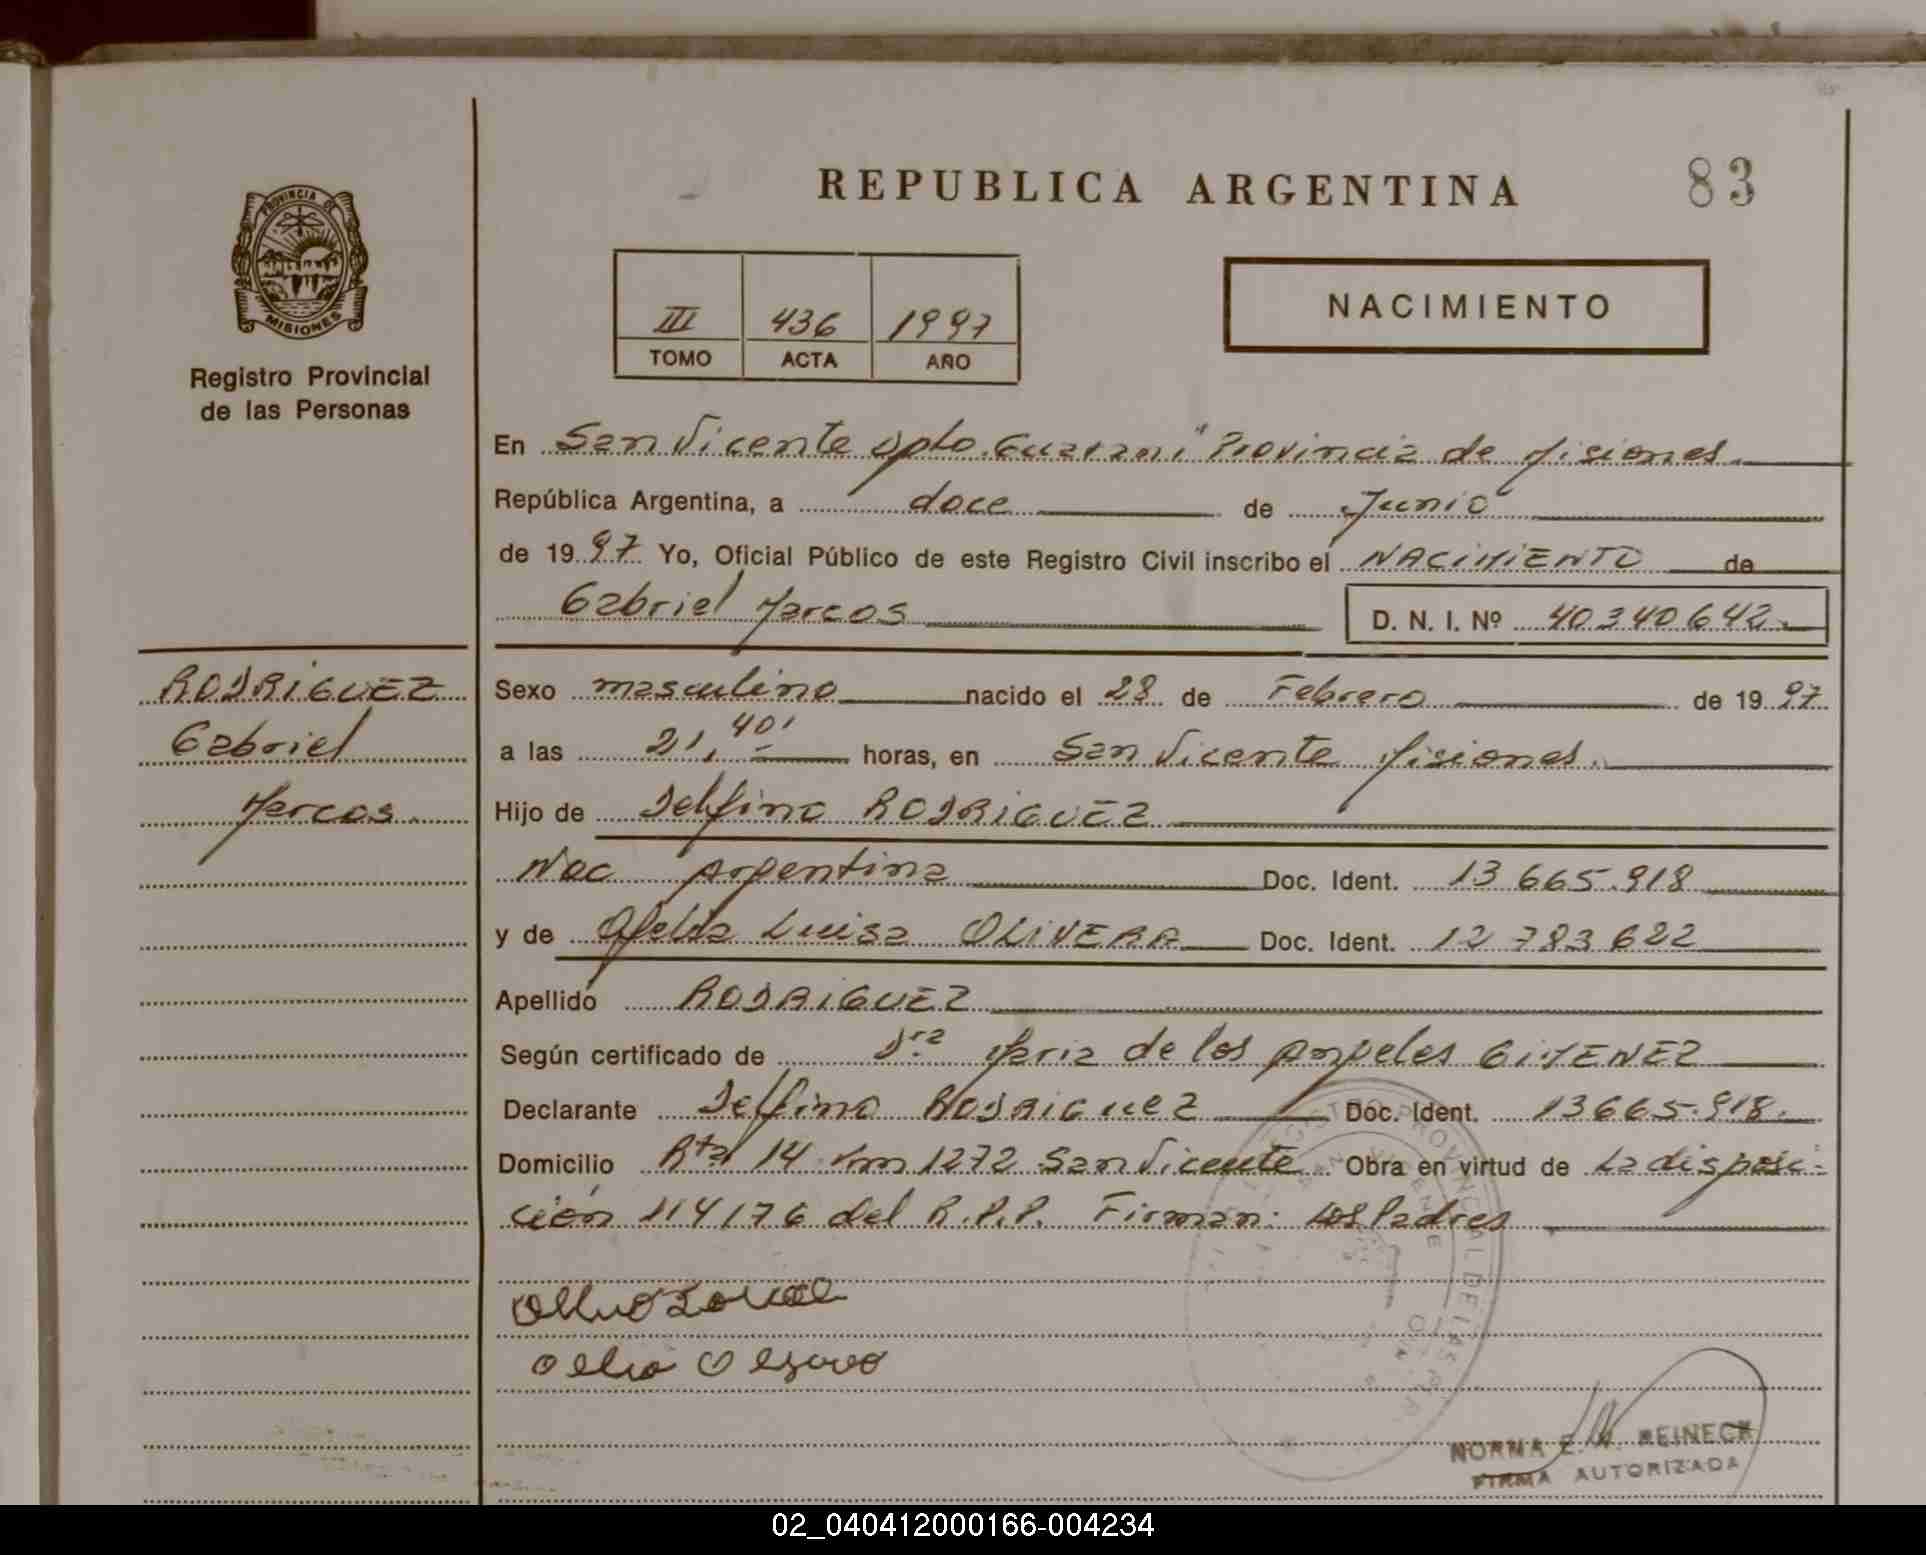 REPUBLICA ARGENTINA
83
PROVINCIA DE
MISIONES
Registro Provincial
de las Personas
III 436 1997
TOMO ACTA AÑO
NACIMIENTO
En San Vicente Dpto. Guarani Provincia de Misiones.
República Argentina, a doce de Junio
de 1997 Yo, Oficial Público de este Registro Civil inscribo el NACIMIENTO de
Gabriel Marcos D. N. I. Nº 40340642.
RODRIGUEZ
Gabriel
Marcos.
Sexo masculino nacido el 28 de Febrero de 1997
a las 21,40' horas, en San Vicente Misiones.
Hijo de Delfino RODRIGUEZ
Nac Argentina Doc. Ident. 13 665.918
y de Ofelia Luisa OLIVERA Doc. Ident. 12 783 622
Apellido RODRIGUEZ
Según certificado de Dra Maria de los Angeles GIMENEZ
Declarante Delfino RODRIGUEZ Doc. Ident. 13665.918.
Domicilio Rta 14 km 1272 San Vicente Obra en virtud de La disposi-
ción 114/76 del R.P.P. Firman: Los Padres
REGISTRO PROVINCIAL DE LAS PER
SAN VICENTE
NORMA E. M. REINECK
FIRMA AUTORIZADA
02_040412000166-004234